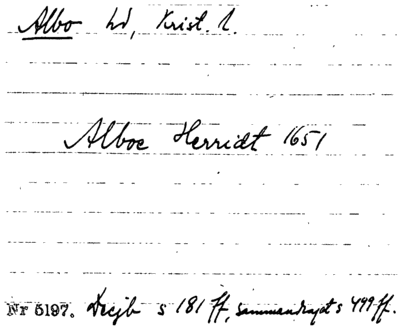 Albo hd, Krist. l.
Alboe Herridt 1651
Nr 5197. Decjb s 181 ff, sammandraget s 499 ff.